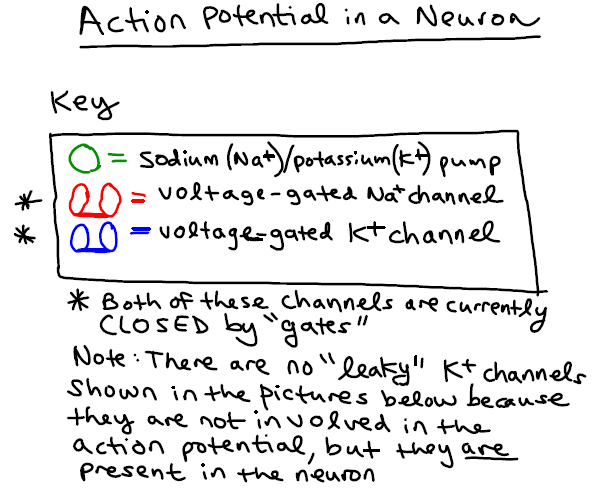 Action Potential in a Neuron
Key
= Sodium (Na+)/potassium(K+) pump
* = voltage-gated Na+ channel
* = voltage-gated K+ channel
* Both of these channels are currently
CLOSED by "gates"
Note: There are no "leaky" K+ channels
shown in the pictures below because
they are not involved in the
action potential, but they are
present in the neuron